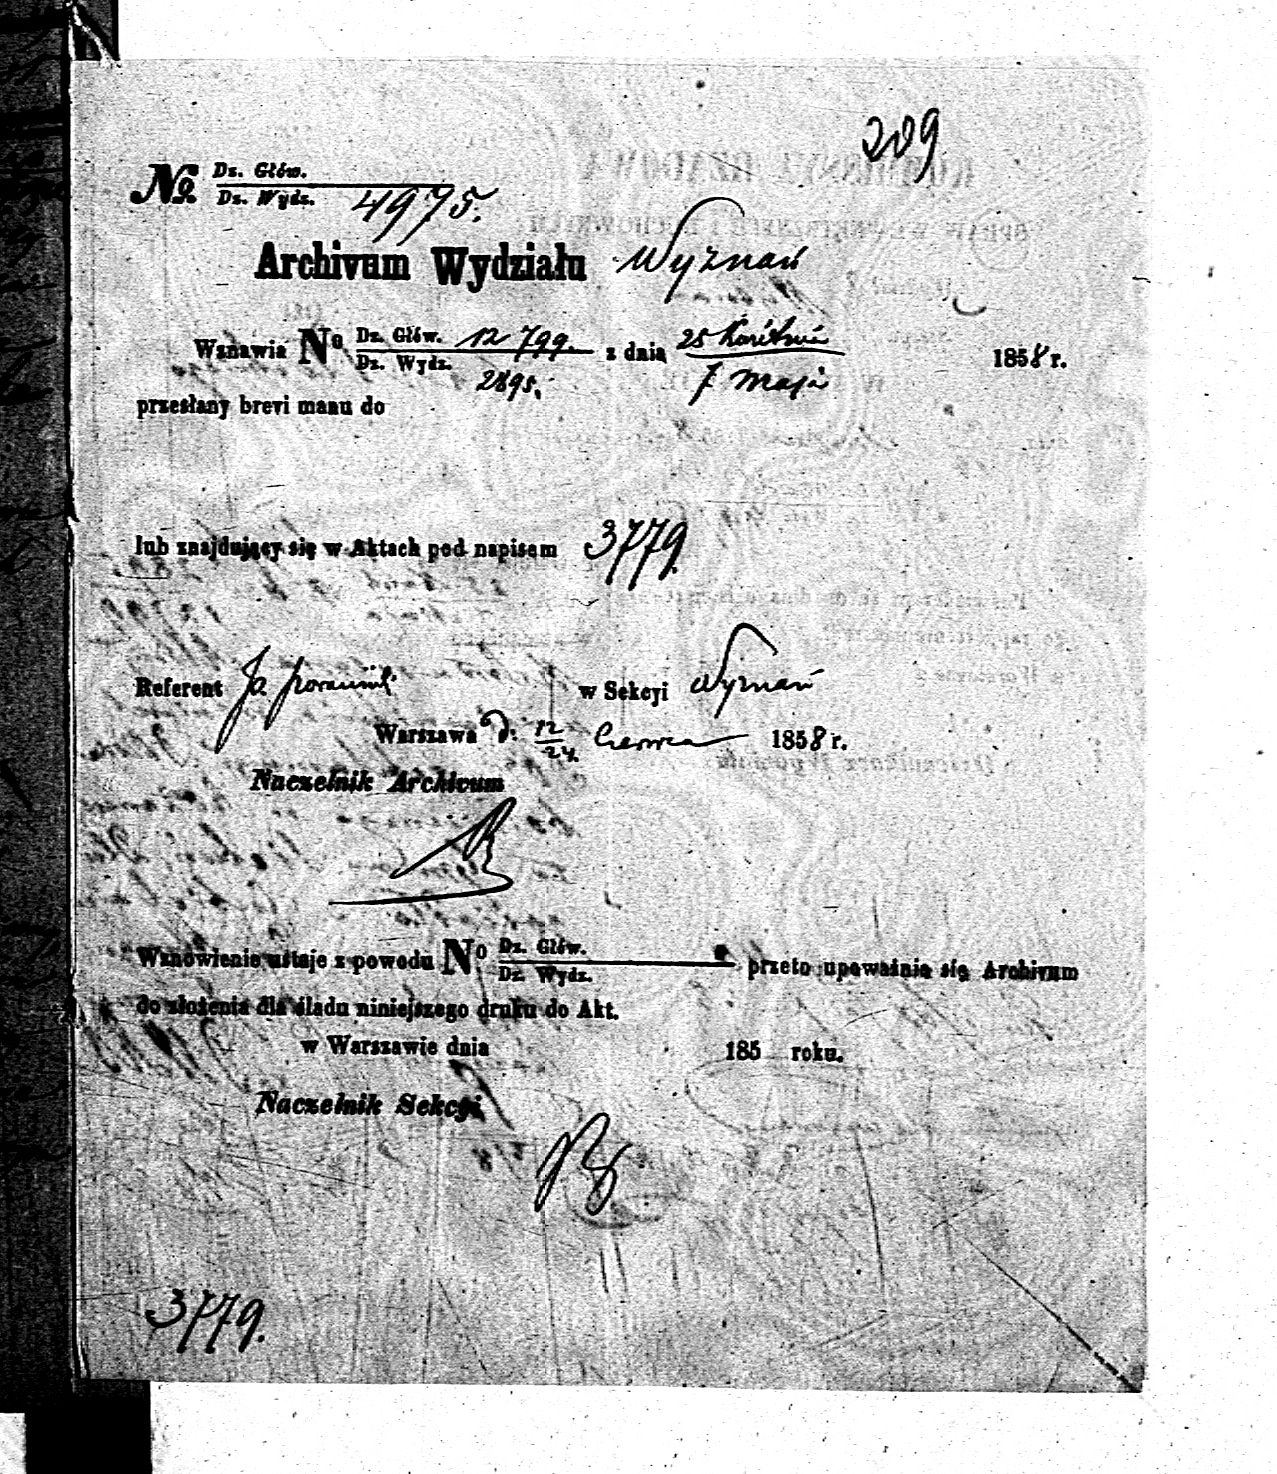 209
No. Dz. Głów.
Dz. Wydz. 4975.
Archivum Wydziału Wyznań
Wznawia No Dz. Głów. 12799. z dnia 25 Kwietnia 1858 r.
Dz. Wydz. 2895. 7 Maja
przesłany brevi manu do
lub znajdujący się w Aktach pod napisem 3779.
Referent w Sekcyi Wyznań
Warszawa d. 12/24 Czerwca 1858 r.
Naczelnik Archivum
Wznowienie ustaje z powodu No Dz. Głów. przeto upoważnia się Archivum
Dz. Wydz.
do złożenia dla śladu niniejszego druku do Akt.
w Warszawie dnia 185 roku.
Naczelnik Sekcyi
3779.